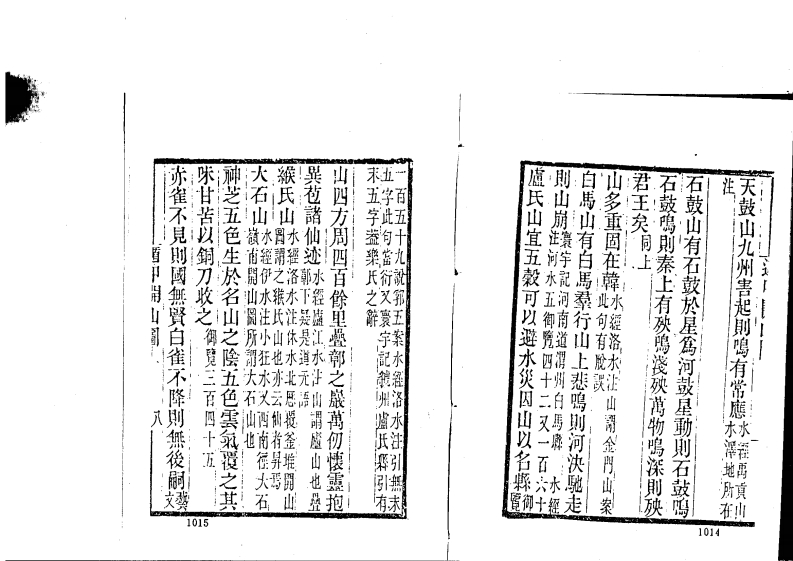 天鼓山九州害起則鳴有常應水經禹貢山
水澤地所在
注
石鼓山有石鼓於星爲河鼓星動則石鼓鳴
石鼓鳴則秦上有殃鳴淺殃萬物鳴深則殃
君王矣同上
山多重固在韓水經洛水注山謂金門山案
此句有脫誤
白馬山有白馬羣行山上悲鳴則河決馳走
則山崩寰宇記河南道滑州白馬縣 水經
注河水五御覽四十二又一百六十
盧氏山宜五穀可以避水災因山以名縣御
覽
1014
一百五十九說郛五案水經洛水注引無末
五字此句當衍又寰宇記虢州盧氏縣引有
末五字蓋樂氏之辭
山四方周四百餘里疊鄣之巖萬仞懷靈抱
異苞諸仙迹水經廬江水注山謂廬山也疊
鄣下疑是道元語
緱氏山水經洛水注休水北歷覆釜堆開山
圖謂之緱氏山也亦云仙者昇焉
大石山水經伊水注小狂水又西南徑大石
嶺南開山圖所謂大石山也
神芝五色生於名山之陰五色雲氣覆之其
味甘苦以銅刀收之御覽二百四十五
赤雀不見則國無賢白雀不降則無後嗣藝
文
遁甲開山圖
八
1015